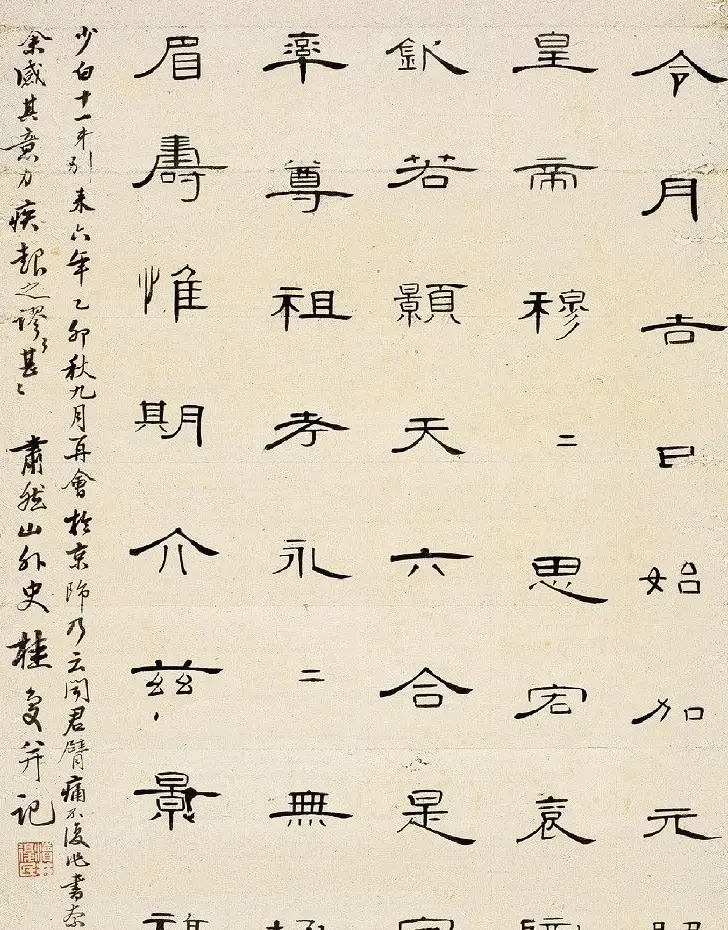 令月吉日始加元
皇帝穆〻思宏衮
欽若顥天六合是
率尊祖考永〻無極
眉壽惟期介兹景福
少白十一弟別來六年乙卯秋九月再會於京師乃云聞君臂痛不復作書奈
余感其意力疾報之謬〻甚〻 肅然山外史桂馥并記